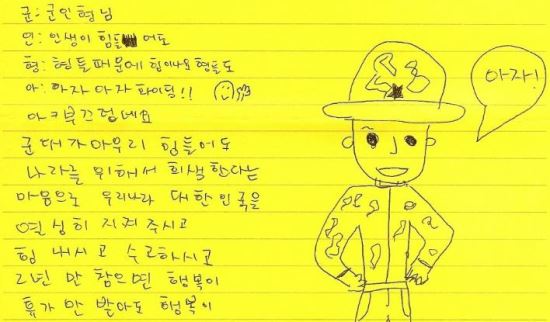 군: 군인형님
인: 인생이 힘들어도
형: 형들때문에 힘이나요 형들도
아: 아자 아자 화이팅!!
아 ㅋ부끄럽네요
군대가 아무리 힘들어도
나라를 위해서 희생한다는
마음으로 우리나라 대한민국을
열심히 지켜주시고
힘 내시고 수고하시고
2년 만 참으면 행복이
휴가 만 받아도 행복이
아자!